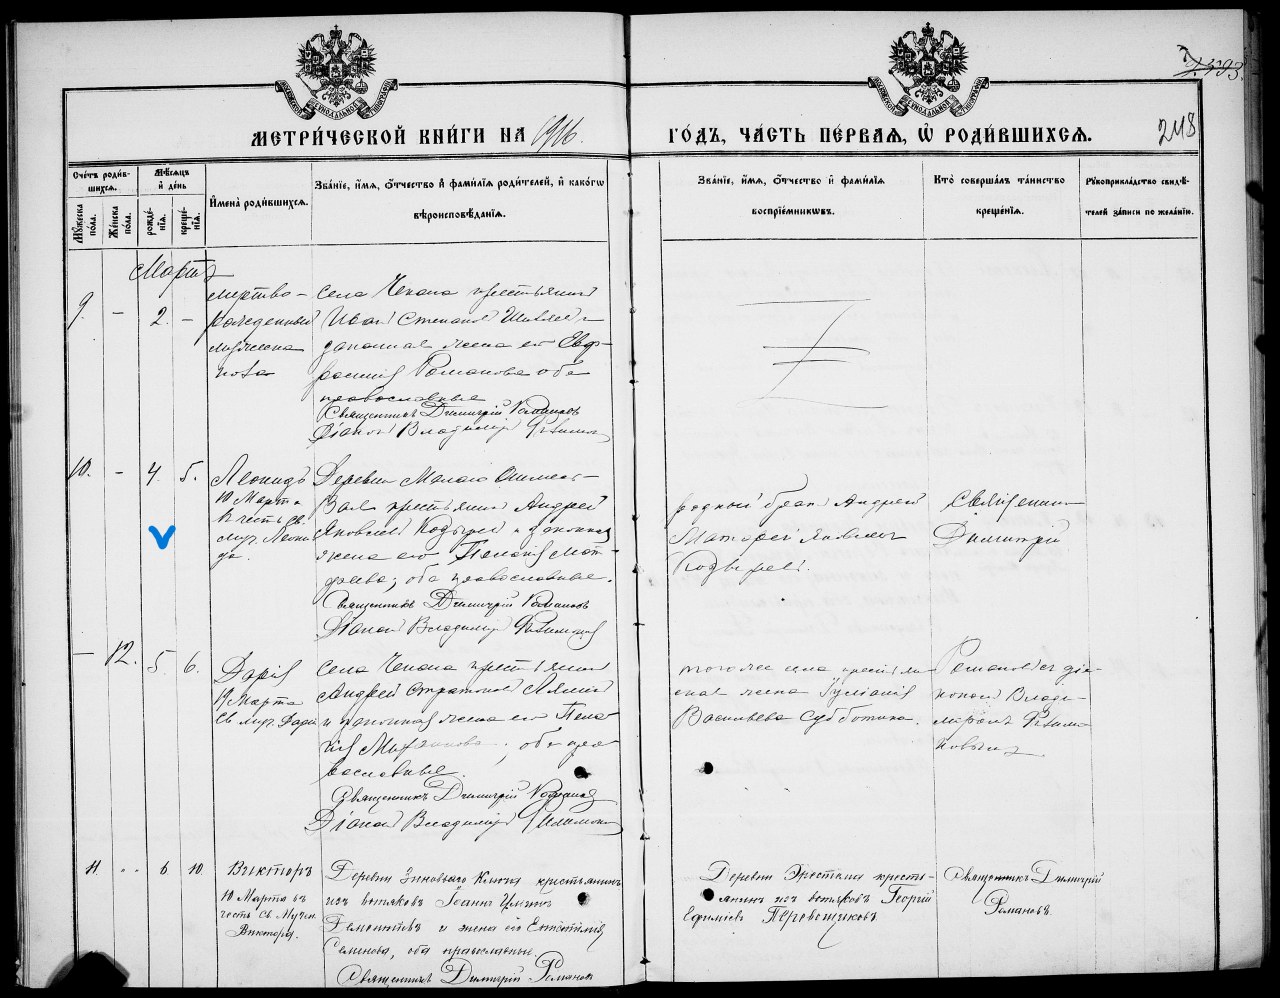 248
МЕТРИ́ЧЕСКОЙ КНИ́ГИ НА 1916 ГО́ДЪ, ЧА́СТЬ ПЕ́РВАЯ, Ѡ҆ РОДИ́ВШИХСѦ.
Сче́тъ роди́в-
шихсѧ.
Мꙋжеска по́ла.
Же́нска по́ла.
Мѣ́сѧцъ
и҆ де́нь
рожде́-
нїѧ.
креще́-
нїѧ.
И҆мена̀ роди́вшихсѧ.
Зва́нїе, и҆́мѧ, ѻ҆́тчество и҆ фами́лїѧ роди́телей, и҆ како́гѡ
вѣроисповѣ́данїѧ.
Зва́нїе, и҆́мѧ, ѻ҆́тчество и҆ фами́лїѧ
воспрїе́мникѡвъ.
Кто̀ соверша́лъ та́инство
креще́нїѧ.
Рꙋкоприкла́дство свидѣ́-
телей за́писи по жела́нїю.
Мартъ
9. – 2. –
мертво-
рожденный
мужеска
пола
села Чекана крестьянин
Иван Степанов
законная жена его Евф-
росиния Романова оба
православные
Священникъ Димитрій Романовъ
Діакон Владимір Филимонов
10. – 4. 5.
Леонидъ
10 Марта
в честь Св.
муч. Леони-
да.
Деревни Малаго
крестьянин Андрей
Яковлев Козырев и законная
жена его Пелагия Мат-
веева; оба православные.
Священникъ Димитрій Романовъ
Діакон Владимір Филимонов
родный брат Андрея
Матвей Яковлев
Козырев.
Священник
Димитрій
– 12. 5. 6.
Дарія
19 Марта
Св. муч. Дарии
села Чекана крестьянин
Андрей Стратонов Лямин
и законная жена его Пела-
гия; оба пра-
вославные.
Священникъ Димитрій Романов
Діакон Владимір Филимонов
того же села крестьян-
ская жена
Васильева Субботина.
Романов с діа-
коном Влади-
миром Филимо-
новым
11. 6. 10.
Викторъ
10 Марта въ
честь Св. Мучен.
Виктора.
Деревни Зиновьаго Ключа крестьянинъ
изъ вотяковъ Іоаннъ
и жена его
Семенова, оба православные.
Священникъ Димитрій Романов
Деревни кресть-
янинъ изъ вотяковъ Георгій
Ефимовъ Перевощиковъ.
Священникъ Димитрій
Романовъ.